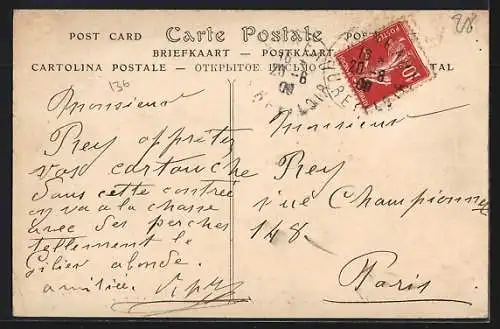 POST CARD Carte Postale POSTK
BRIEFKAART — POSTKAART
CARTOLINA POSTALE — ОТКРЫТОЕ ПИСЬМО TAL
136
Monsieur
Prey apprêter
vos cartouche
Dans cette contrée
on va à la chasse
avec des perches
tellement le
Gibier abonde.
amitiée.
Monsieur
Prey
rue Championnet
148.
Paris
POSTES
10
18
20 - 6
09
18
20 - 6
09